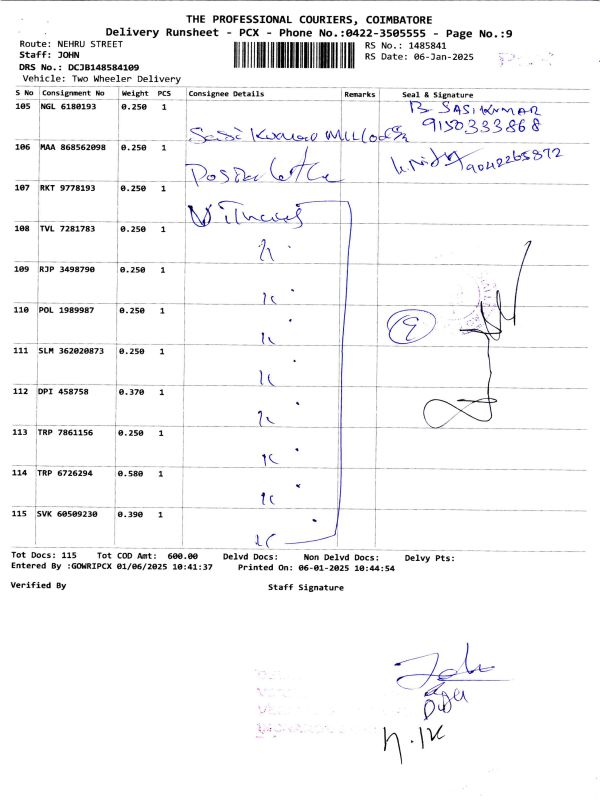 THE PROFESSIONAL COURIERS, COIMBATORE
Delivery Runsheet - PCX - Phone No.:0422-3505555 - Page No.:9
Route: NEHRU STREET
RS No.: 1485841
Staff: JOHN
RS Date: 06-Jan-2025
DRS No.: DCJB148584109
Vehicle: Two Wheeler Delivery
S No Consignment No Weight PCS Consignee Details Remarks Seal & Signature
105 NGL 6180193 0.250 1 B SASIKUMAR
9150333868
106 MAA 868562098 0.250 1 9042265372
107 RKT 9778193 0.250 1
108 TVL 7281783 0.250 1
109 RJP 3498790 0.250 1
110 POL 1989987 0.250 1 9
111 SLM 362020873 0.250 1
112 DPI 458758 0.370 1
113 TRP 7861156 0.250 1
114 TRP 6726294 0.580 1
115 SVK 60509230 0.390 1
Tot Docs: 115 Tot COD Amt: 600.00 Delvd Docs: Non Delvd Docs: Delvy Pts:
Entered By :GOWRIPCX 01/06/2025 10:41:37 Printed On: 06-01-2025 10:44:54
Verified By Staff Signature